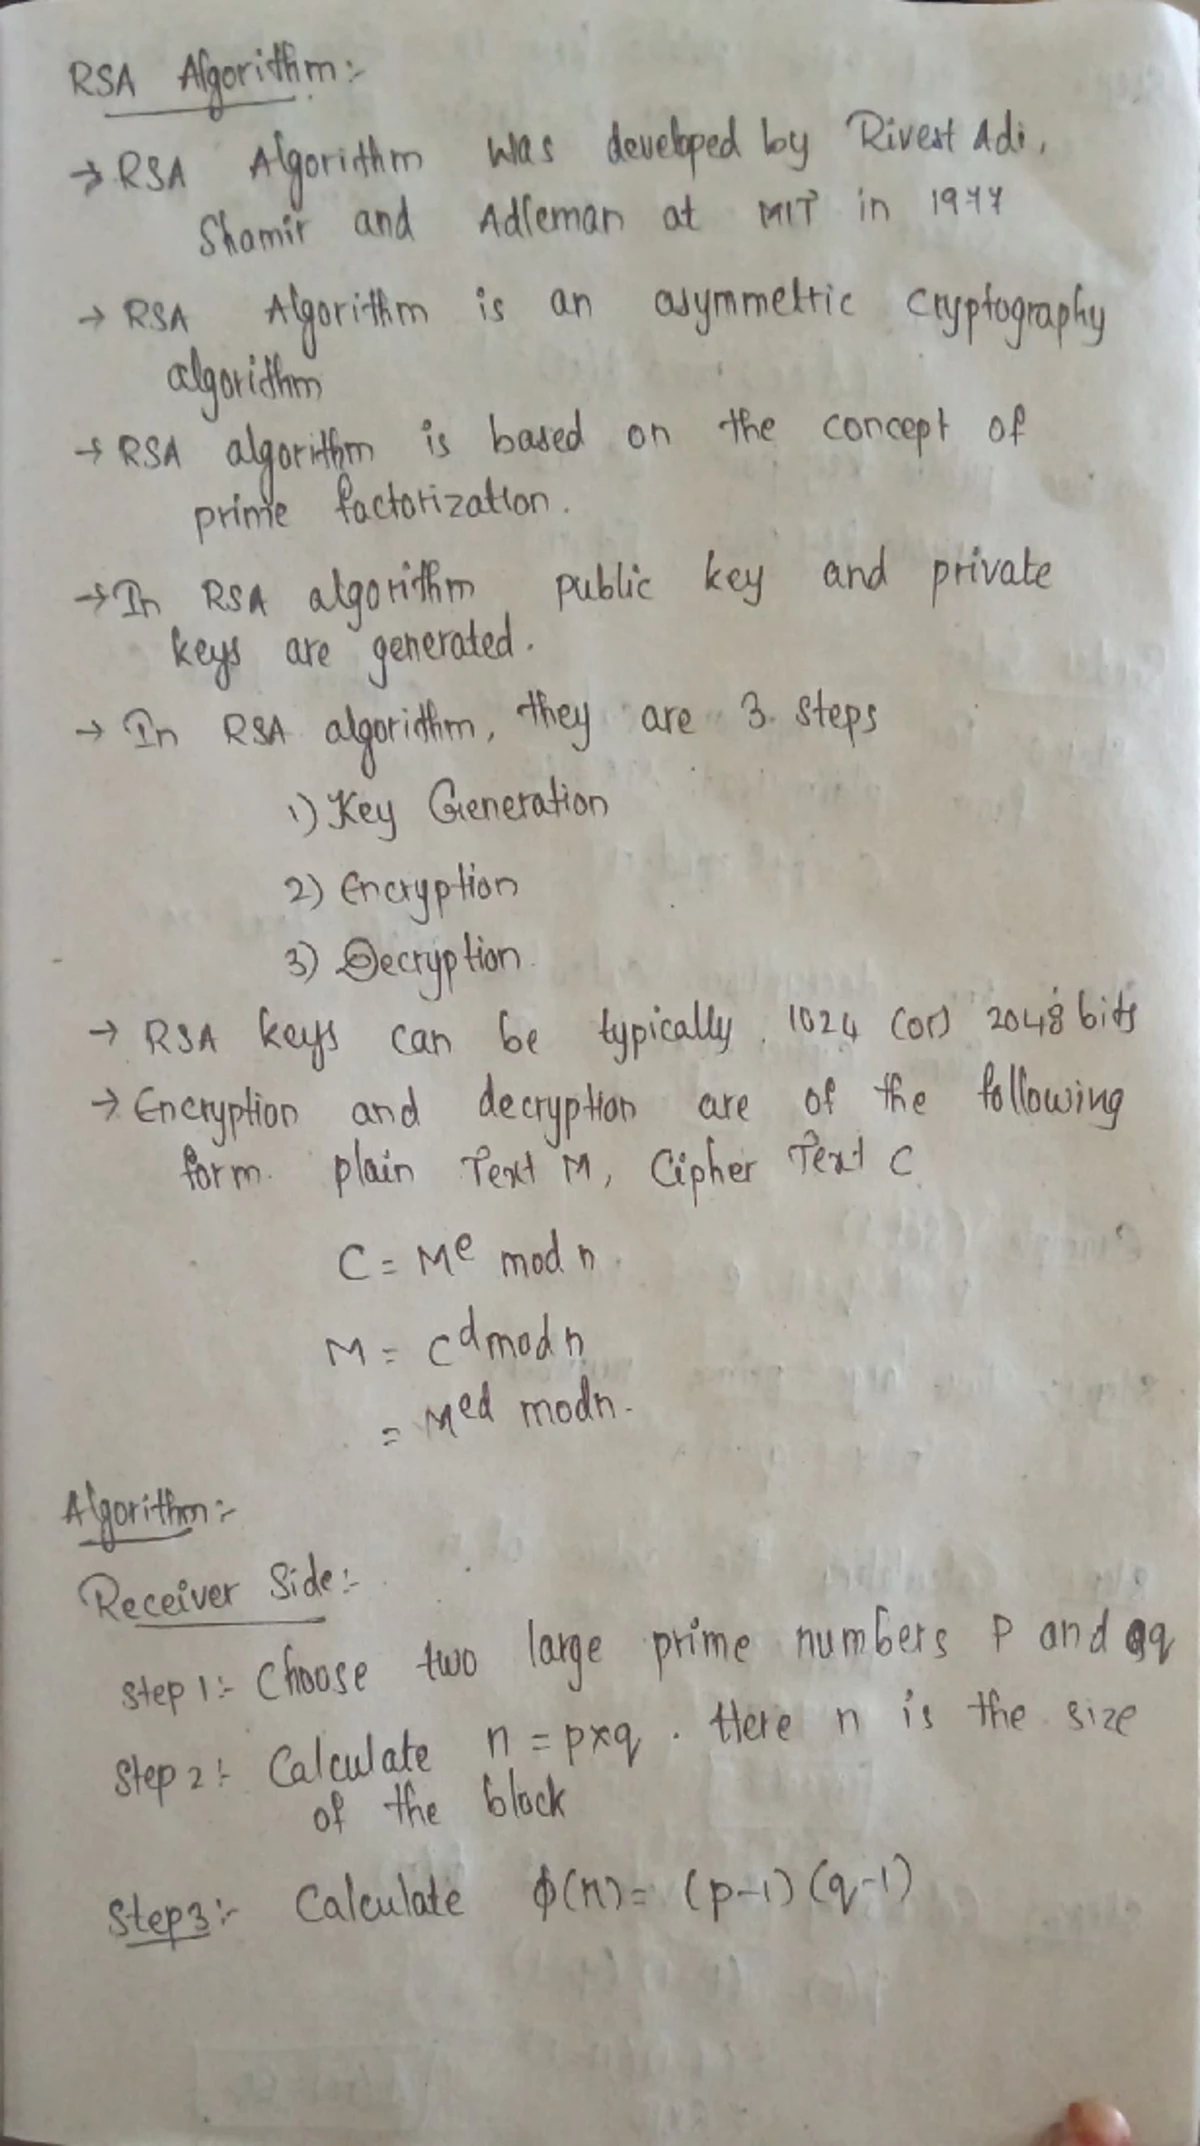 RSA Algorithm:-
→ RSA Algorithm was developed by Rivest Adi,
Shamir and Adleman at MIT in 1977
→ RSA Algorithm is an asymmetric cryptography
algorithm
→ RSA algorithm is based on the concept of
prime factorization.
→ In RSA algorithm public key and private
keys are generated.
→ In RSA algorithm, they are 3 steps
1) Key Generation
2) Encryption
3) Decryption
→ RSA keys can be typically 1024 (or) 2048 bits
→ Encryption and decryption are of the following
form. plain Text M, Cipher Text C
C = M^e mod n
M = C^d mod n
= M^ed mod n.
Algorithm:-
Receiver Side:-
Step 1:- Choose two large prime numbers P and q
Step 2:- Calculate n = p×q. Here n is the size
of the block
Step 3:- Calculate ϕ(n) = (p-1) (q-1)